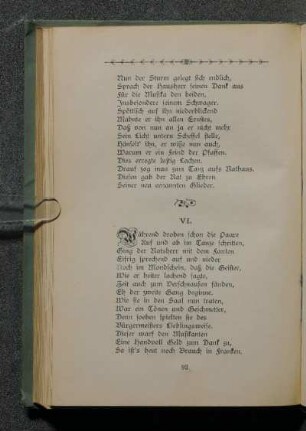 Nun der Sturm gelegt sich endlich,
Sprach der Hausherr seinen Dank aus
Für die Musika den beiden,
Insbesondere seinem Schwager.
Spöttisch auf ihn niederblickend
Mahnte er ihn allen Ernstes,
Daß von nun an ja er nicht mehr
Sein Licht untern Scheffel stelle,
Hänselt' ihn, er wisse nun auch,
Warum er ein Feind der Pfaffen.
Dies erregte lustig Lachen.
Drauf zog man zum Tanz aufs Rathaus.
Diesen gab der Rat zu Ehren
Seiner neu ernannten Glieder.
VI.
Während droben schon die Paare
Auf und ab im Tanze schritten,
Ging der Ratsherr mit dem Kunzen
Eifrig sprechend auf und nieder
Noch im Mondschein, daß die Geister,
Wie er heiter lachend sagte,
Zeit auch zum Verschnaufen fänden,
Eh der zweite Gang beginne.
Wie sie in den Saal nun traten,
War ein Tönen und Geschmetter,
Denn soeben spielten sie des
Bürgermeisters Lieblingsweise.
Dieser warf den Musikanten
Eine Handvoll Geld zum Dank zu,
So ist's heut noch Brauch in Franken.
92